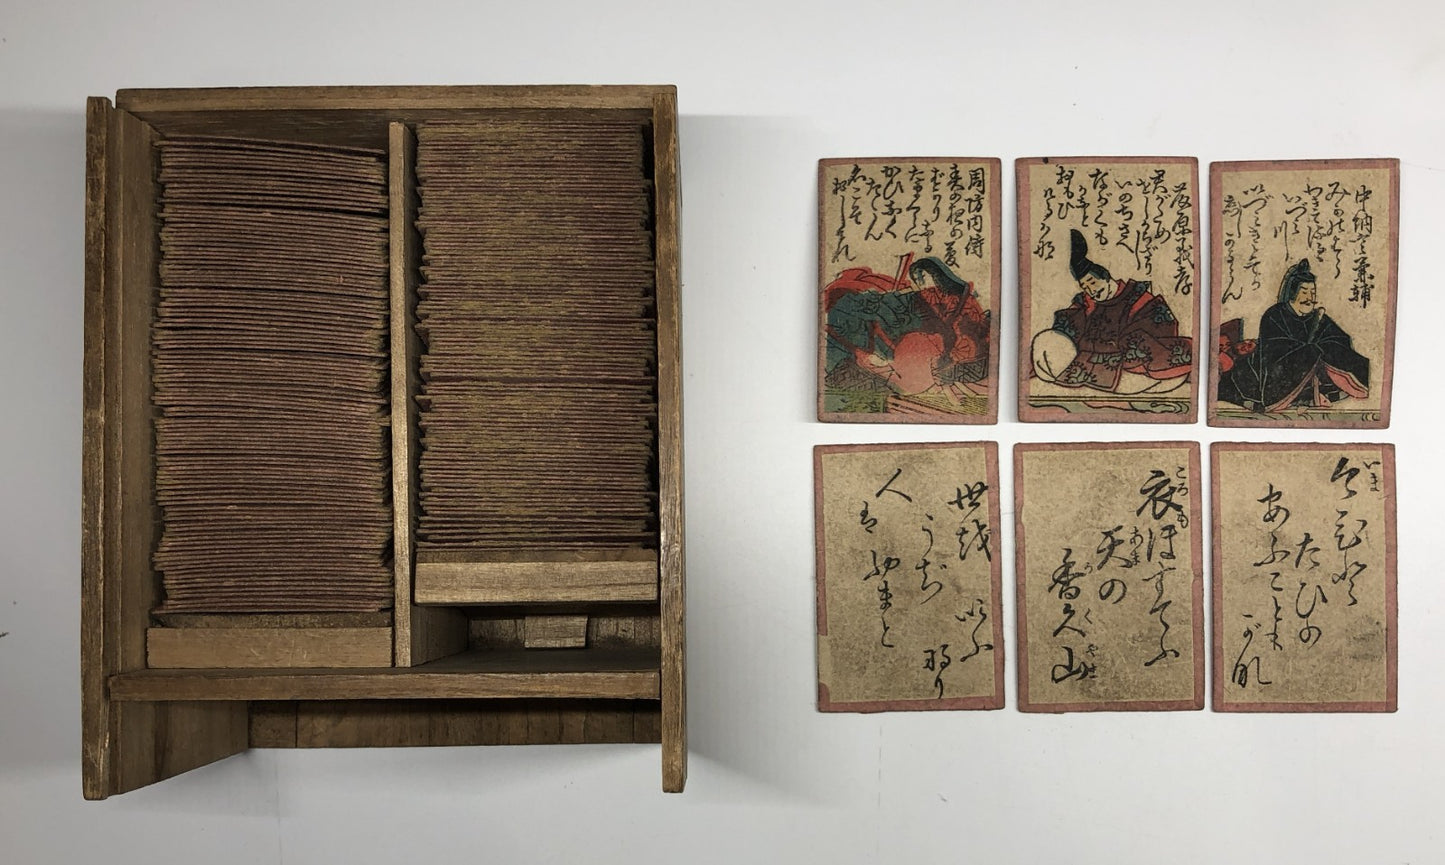 周防内侍
春の夜の夢
ばかりなる
たまくらに
かひなく
たゝん
名こそ
おしけれ
藤原義孝
君がため
をしからざりし
いのちさへ
ながくも
がなと
おもひ
けるかな
中納言兼輔
みかのはら
わきてながるゝ
いづみ川
いつみきとてか
恋しかるらん
世越
うぢ
やまと
人は
いふ
なり
衣ほすてふ
ころも
天の
あま
香久山
かくやま
今ひと
いま
たひの
あふことも
が那